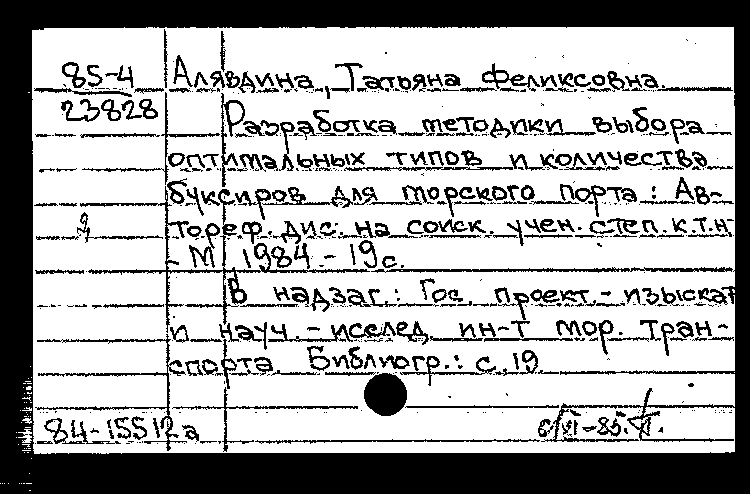 85-4 Алявдина, Татьяна Феликсовна
23828 Разработка методики выбора
оптимальных типов и количества
буксиров для морского порта: Ав-
тореф. дис. на соиск. учен. степ. к.т.н
- М, 1984. - 19с.
В надзаг.: Гос. проект.-изыскат
и науч.-исслед. ин-т мор. тран-
спорта. Библиогр.: с. 19
84-15512а